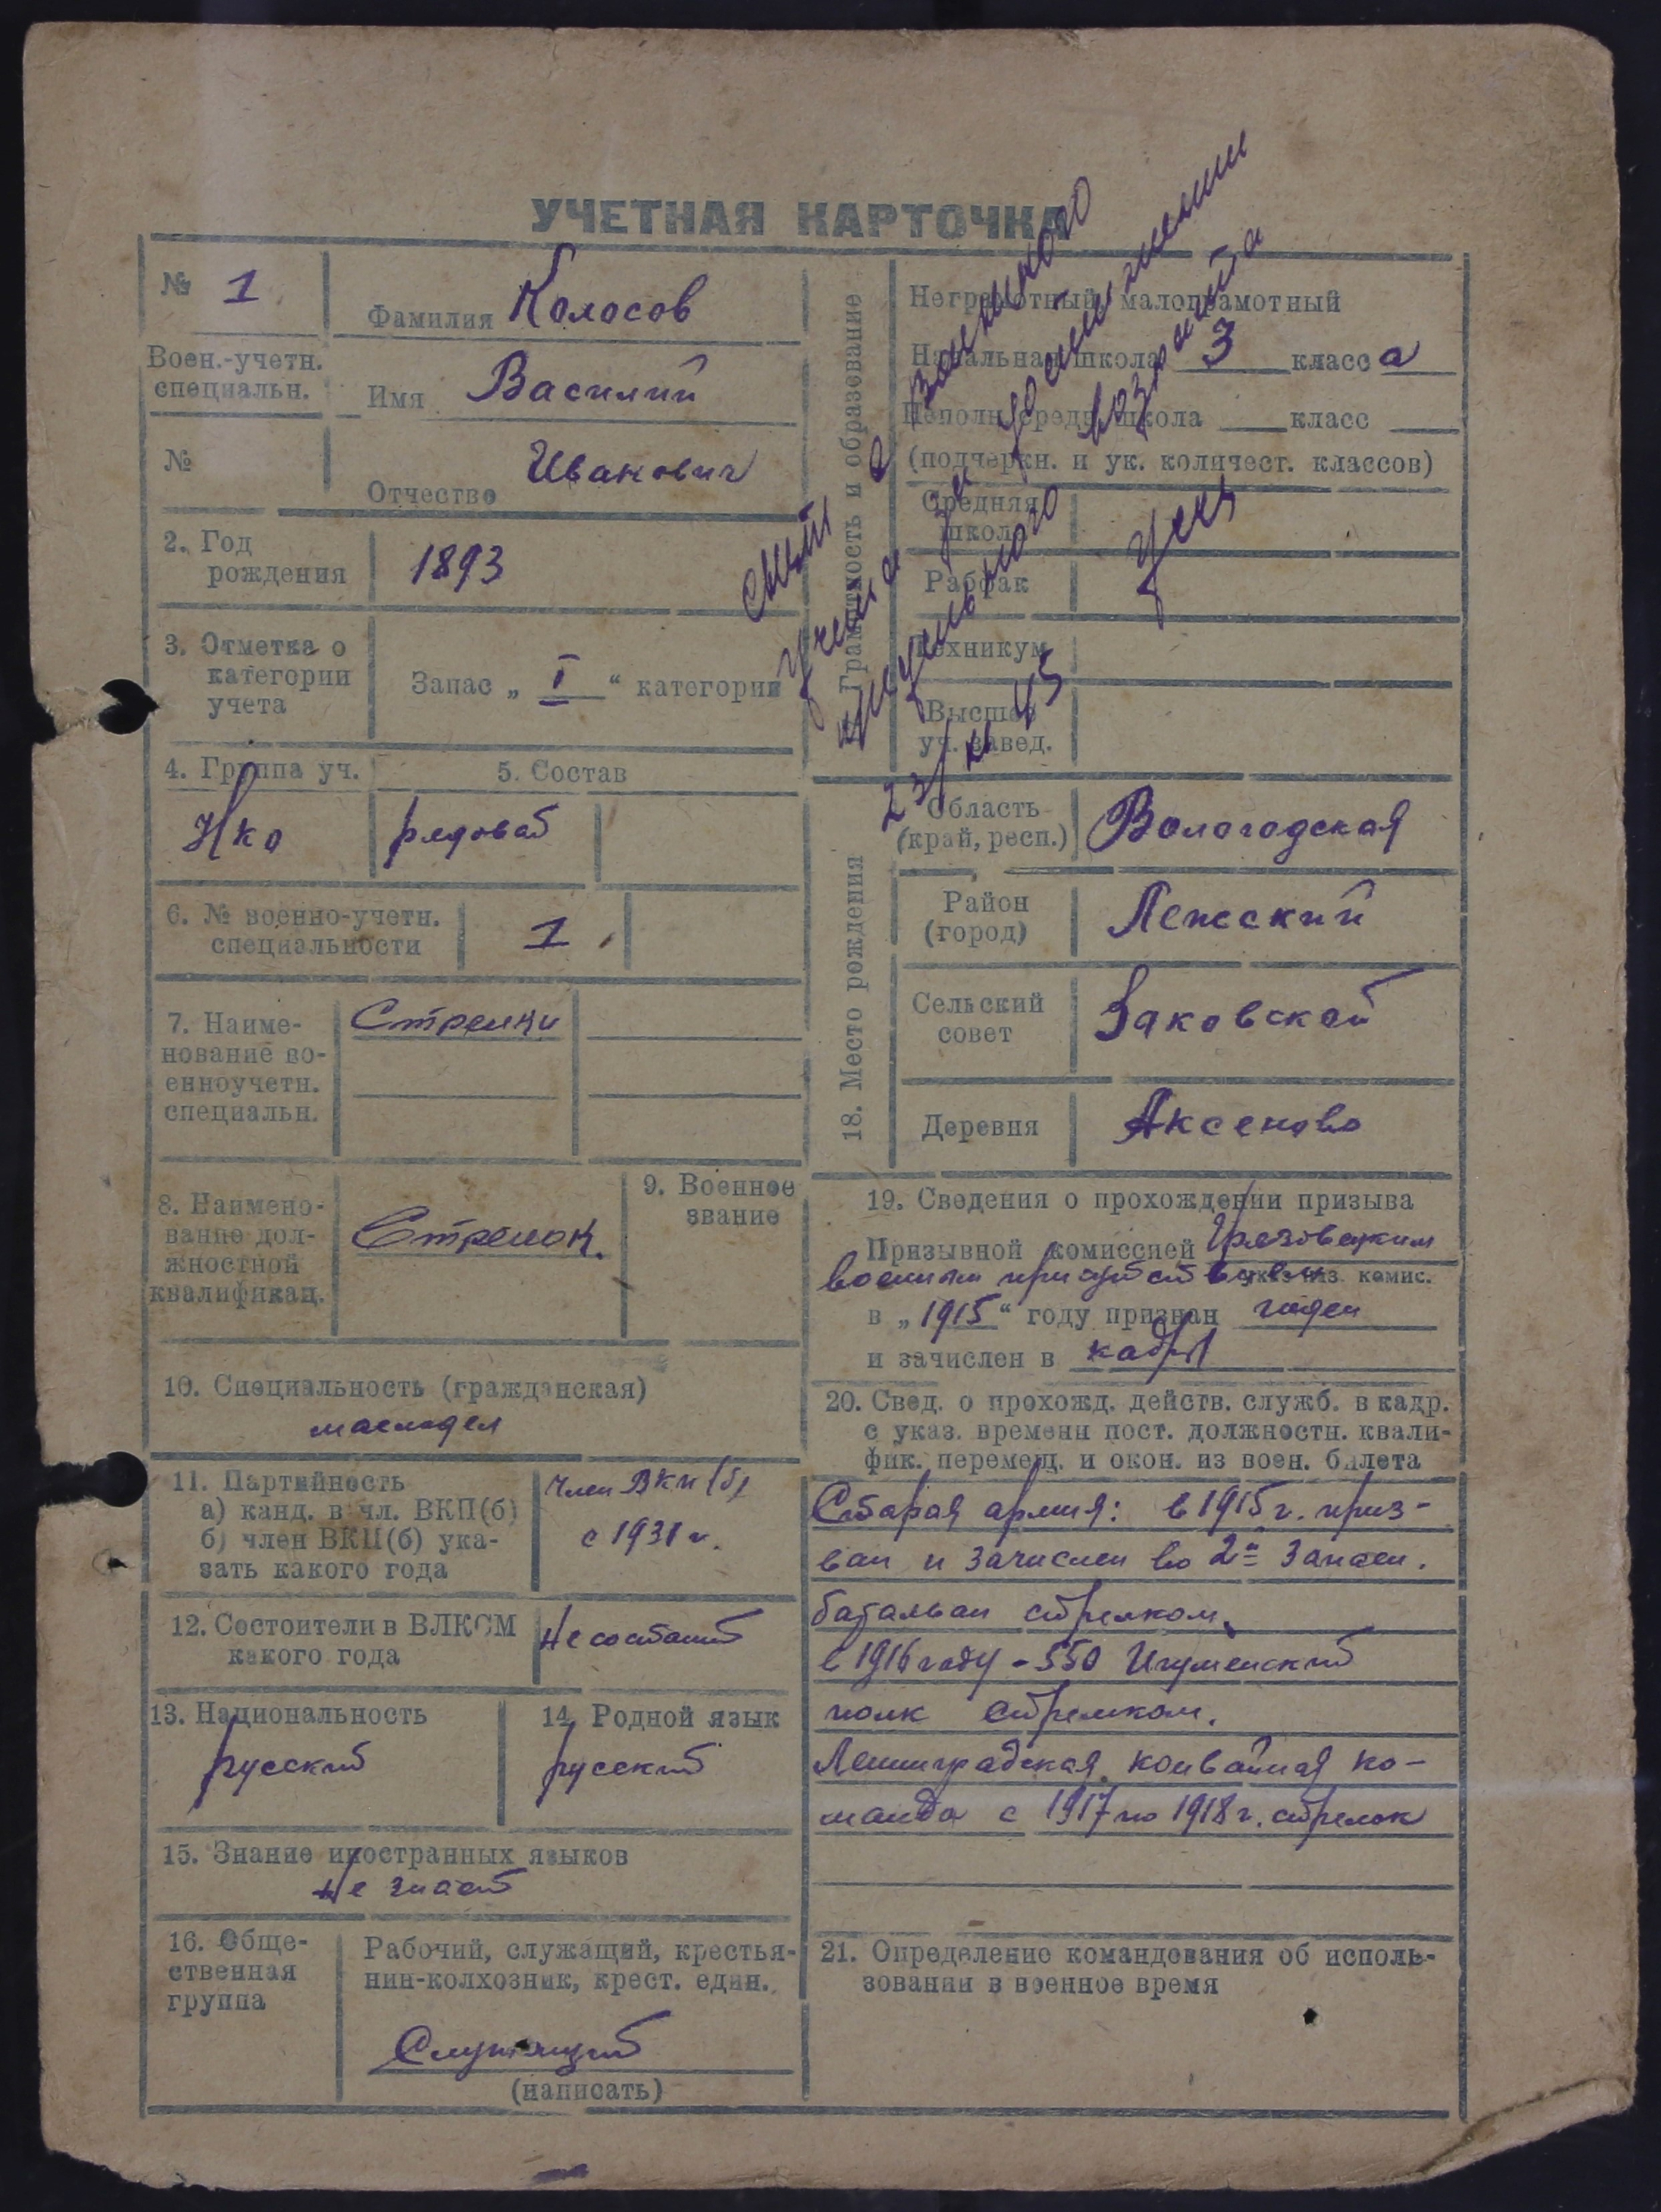 УЧЕТНАЯ КАРТОЧКА
№ 1
Фамилия Колосов
Воен.-учетн.
специальн.
Имя Василий
№
Отчество Иванович
2. Год
рождения
1893
3. Отметка о
категории
учета
Запас „ I “ категории
4. Группа уч.
5. Состав
Нко
рядовой
6. № военно-учетн.
специальности
1
7. Наиме-
нование во-
енноучетн.
специальн.
Стрелки
8. Наимено-
вание дол-
жностной
квалификац.
Стрелок.
9. Военное
звание
10. Специальность (гражданская)
маслодел
11. Партийность
а) канд. в чл. ВКП(б)
б) член ВКП(б) ука-
зать какого года
Член ВКП(б)
с 1931 г.
12. Состоители в ВЛКСМ
какого года
Не состоит
13. Национальность
русский
14. Родной язык
русский
15. Знание иностранных языков
Не знает
16. Обще-
ственная
группа
Рабочий, служащий, крестья-
нин-колхозник, крест. един.
Служащий
(написать)
Грамотность и образование
Неграмотный, малограмотный
Начальная школа 3 класс а
Неполн. средн. школа класс
(подчеркн. и ук. количест. классов)
Средняя
школа
Рабфак
Техникум
Высшее
уч. завед.
снят с воинского
учета за достижении
предельного возраста
23/XI 45
18. Место рождения
Область
(край, респ.)
Вологодская
Район
(город)
Лежский
Сельский
совет
Заковской
Деревня
Аксеново
19. Сведения о прохождении призыва
Призывной комиссией Грязовецким
военным присутствием
каз. приз. комис.
в „ 1915 “ году признан годен
и зачислен в кадры
20. Свед. о прохожд. действ. служб. в кадр.
с указ. времени пост. должностн. квали-
фик. перемещ. и окон. из воен. билета
Старая армия: в 1915 г. приз-
ван и зачислен во 2й запасн.
баталион стрелком.
в 1916 году - 550 Игуменский
полк стрелком.
Ленинградская конвойная ко-
манда с 1917 по 1918 г. стрелок
21. Определение командования об исполь-
зовании в военное время